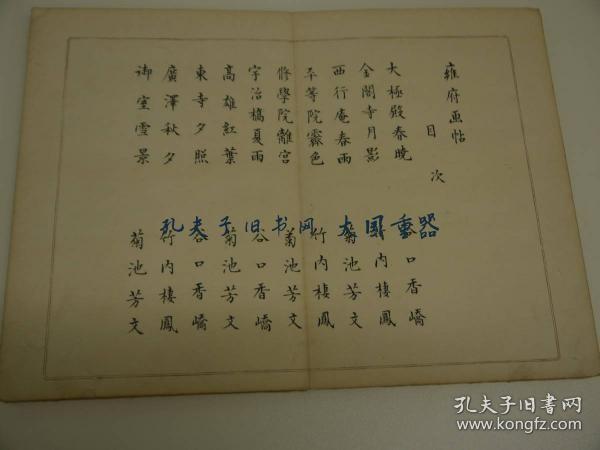 雍府画帖
目次
大極殿春曉 谷口香嶠
金閣寺月影 竹内棲鳳
西行庵春雨 菊池芳文
平等院霽色 竹内棲鳳
脩學院離宮 菊池芳文
宇治橋夏雨 谷口香嶠
高雄紅葉 菊池芳文
東寺夕照 谷口香嶠
廣澤秋夕 竹内棲鳳
御室雪景 菊池芳文
孔夫子旧书网 大国重器
孔夫子旧书网
www.kongfz.com